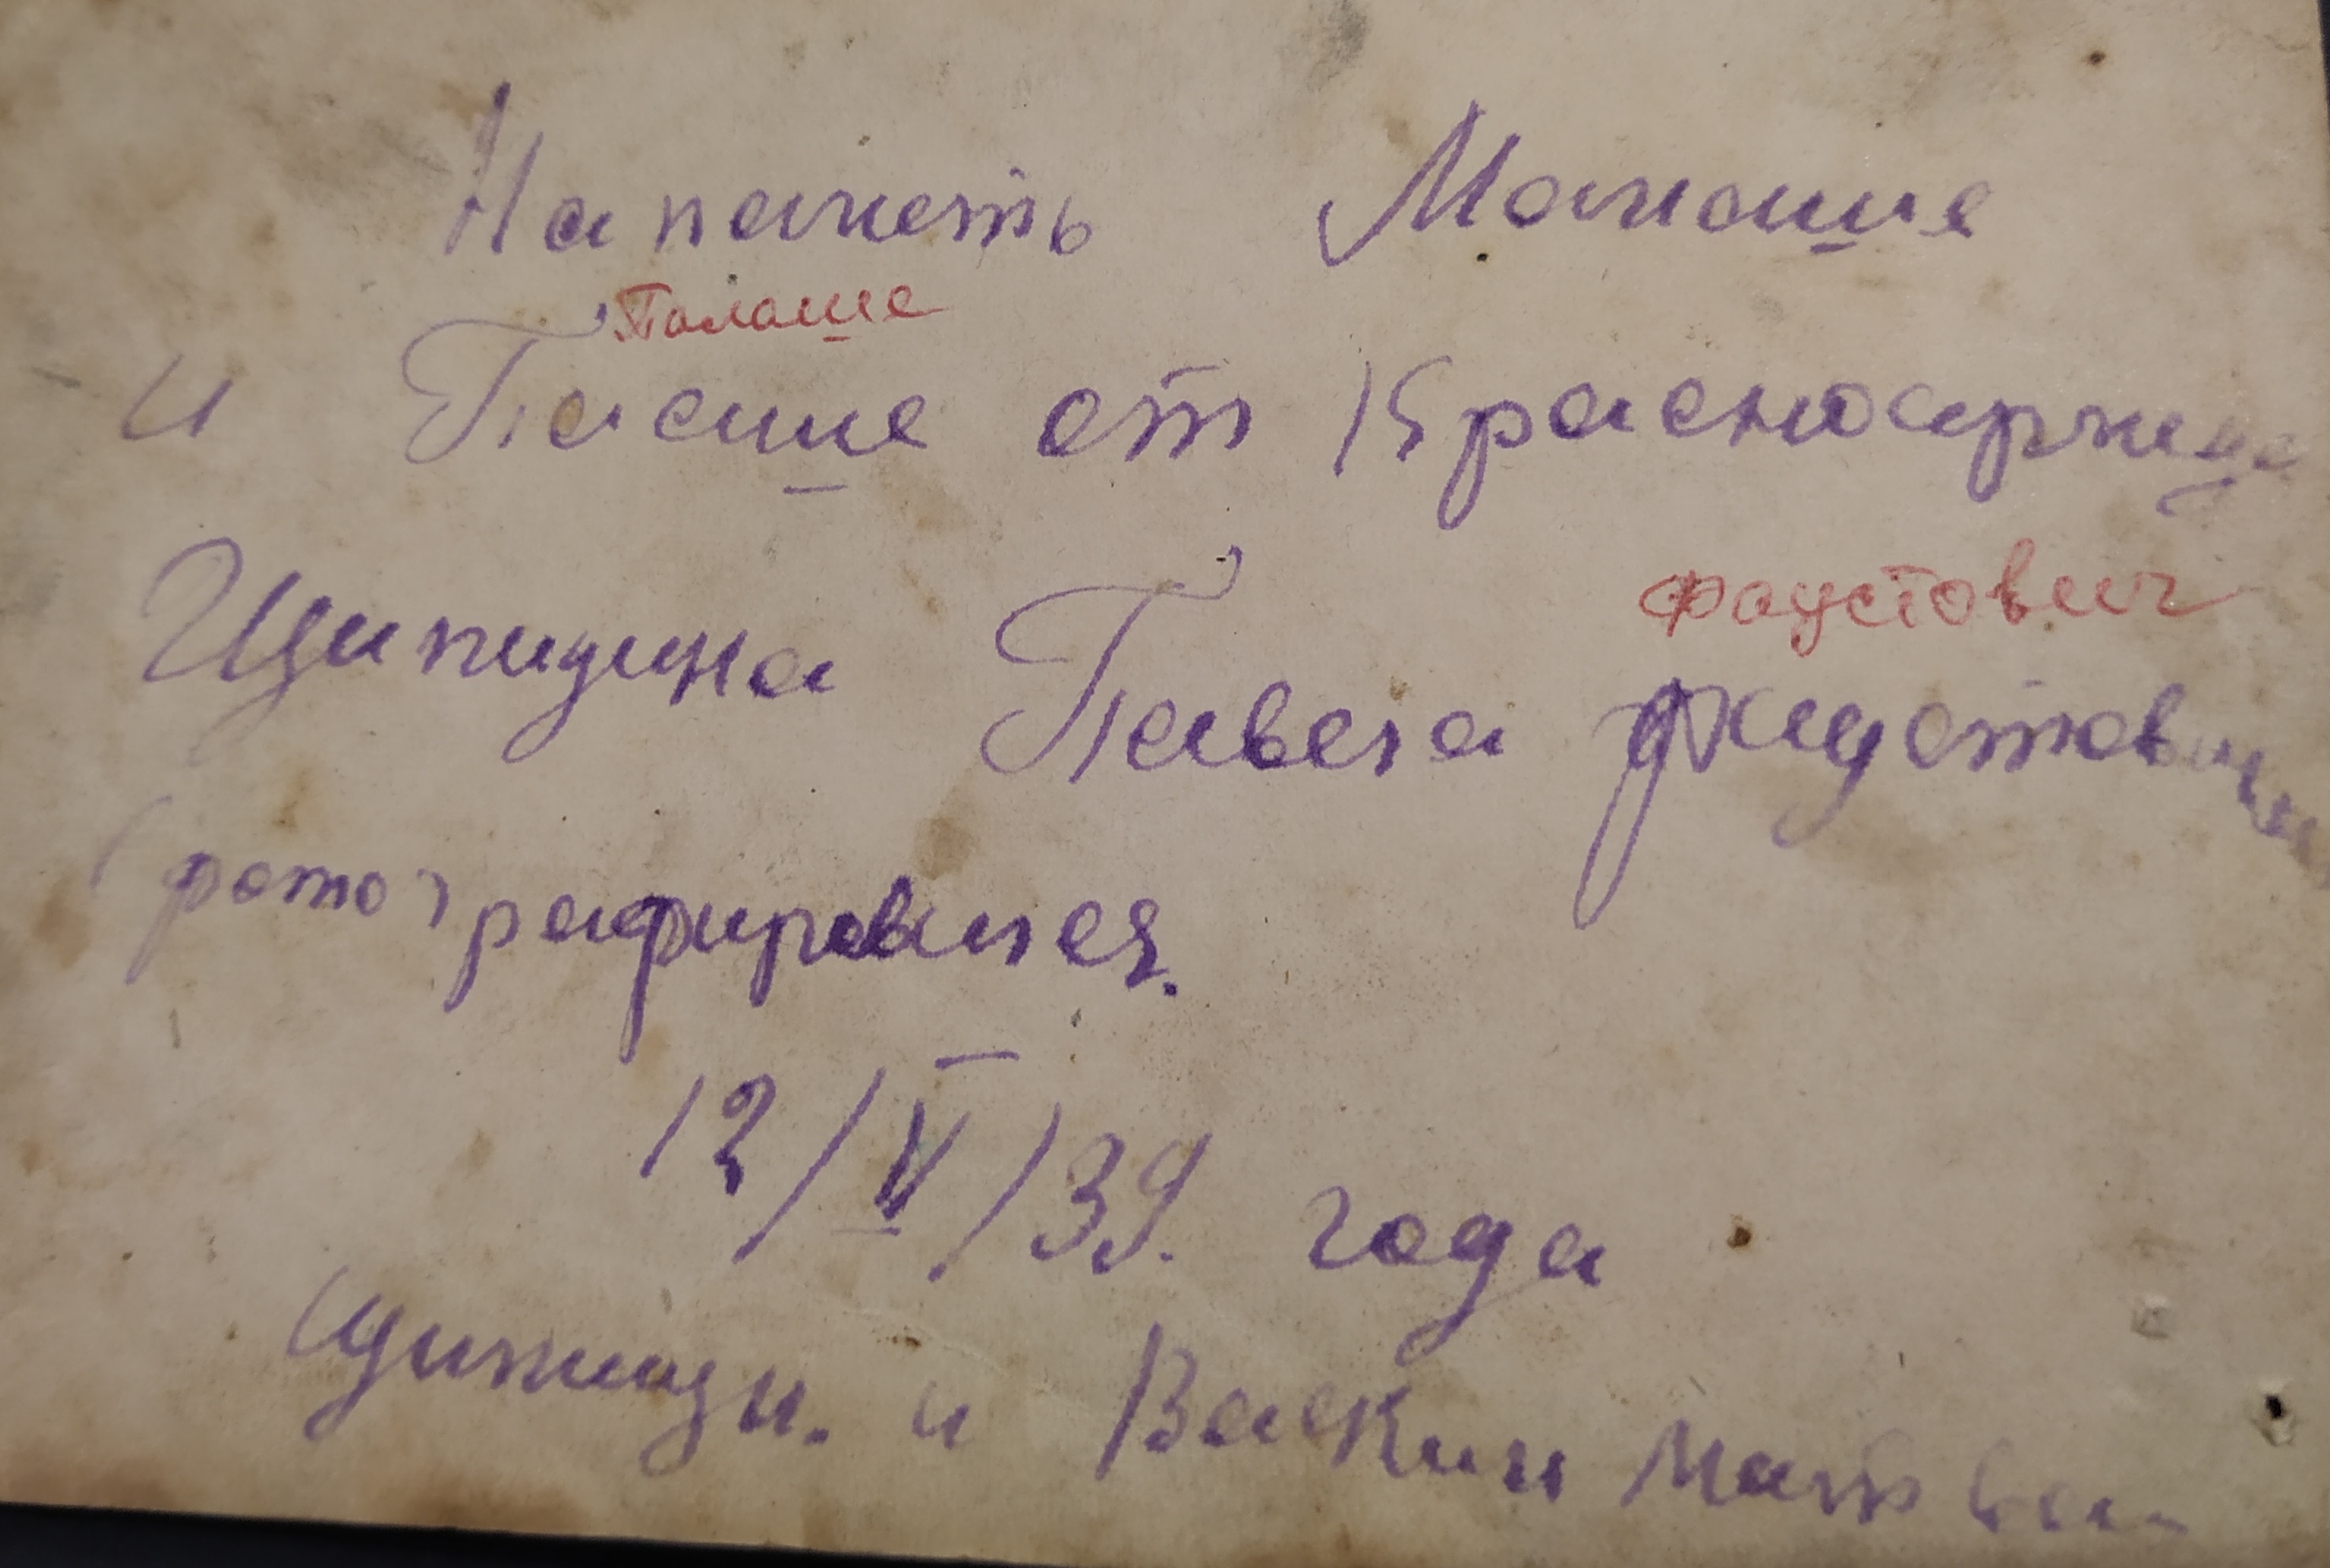 На память Мамаше
Палаше
и Пасше от Красноармейца
Фаустович
Щипицина Павела Фаустовича
фотографировался.
12/V/39. года
Щипицын. и Васкин Матвей